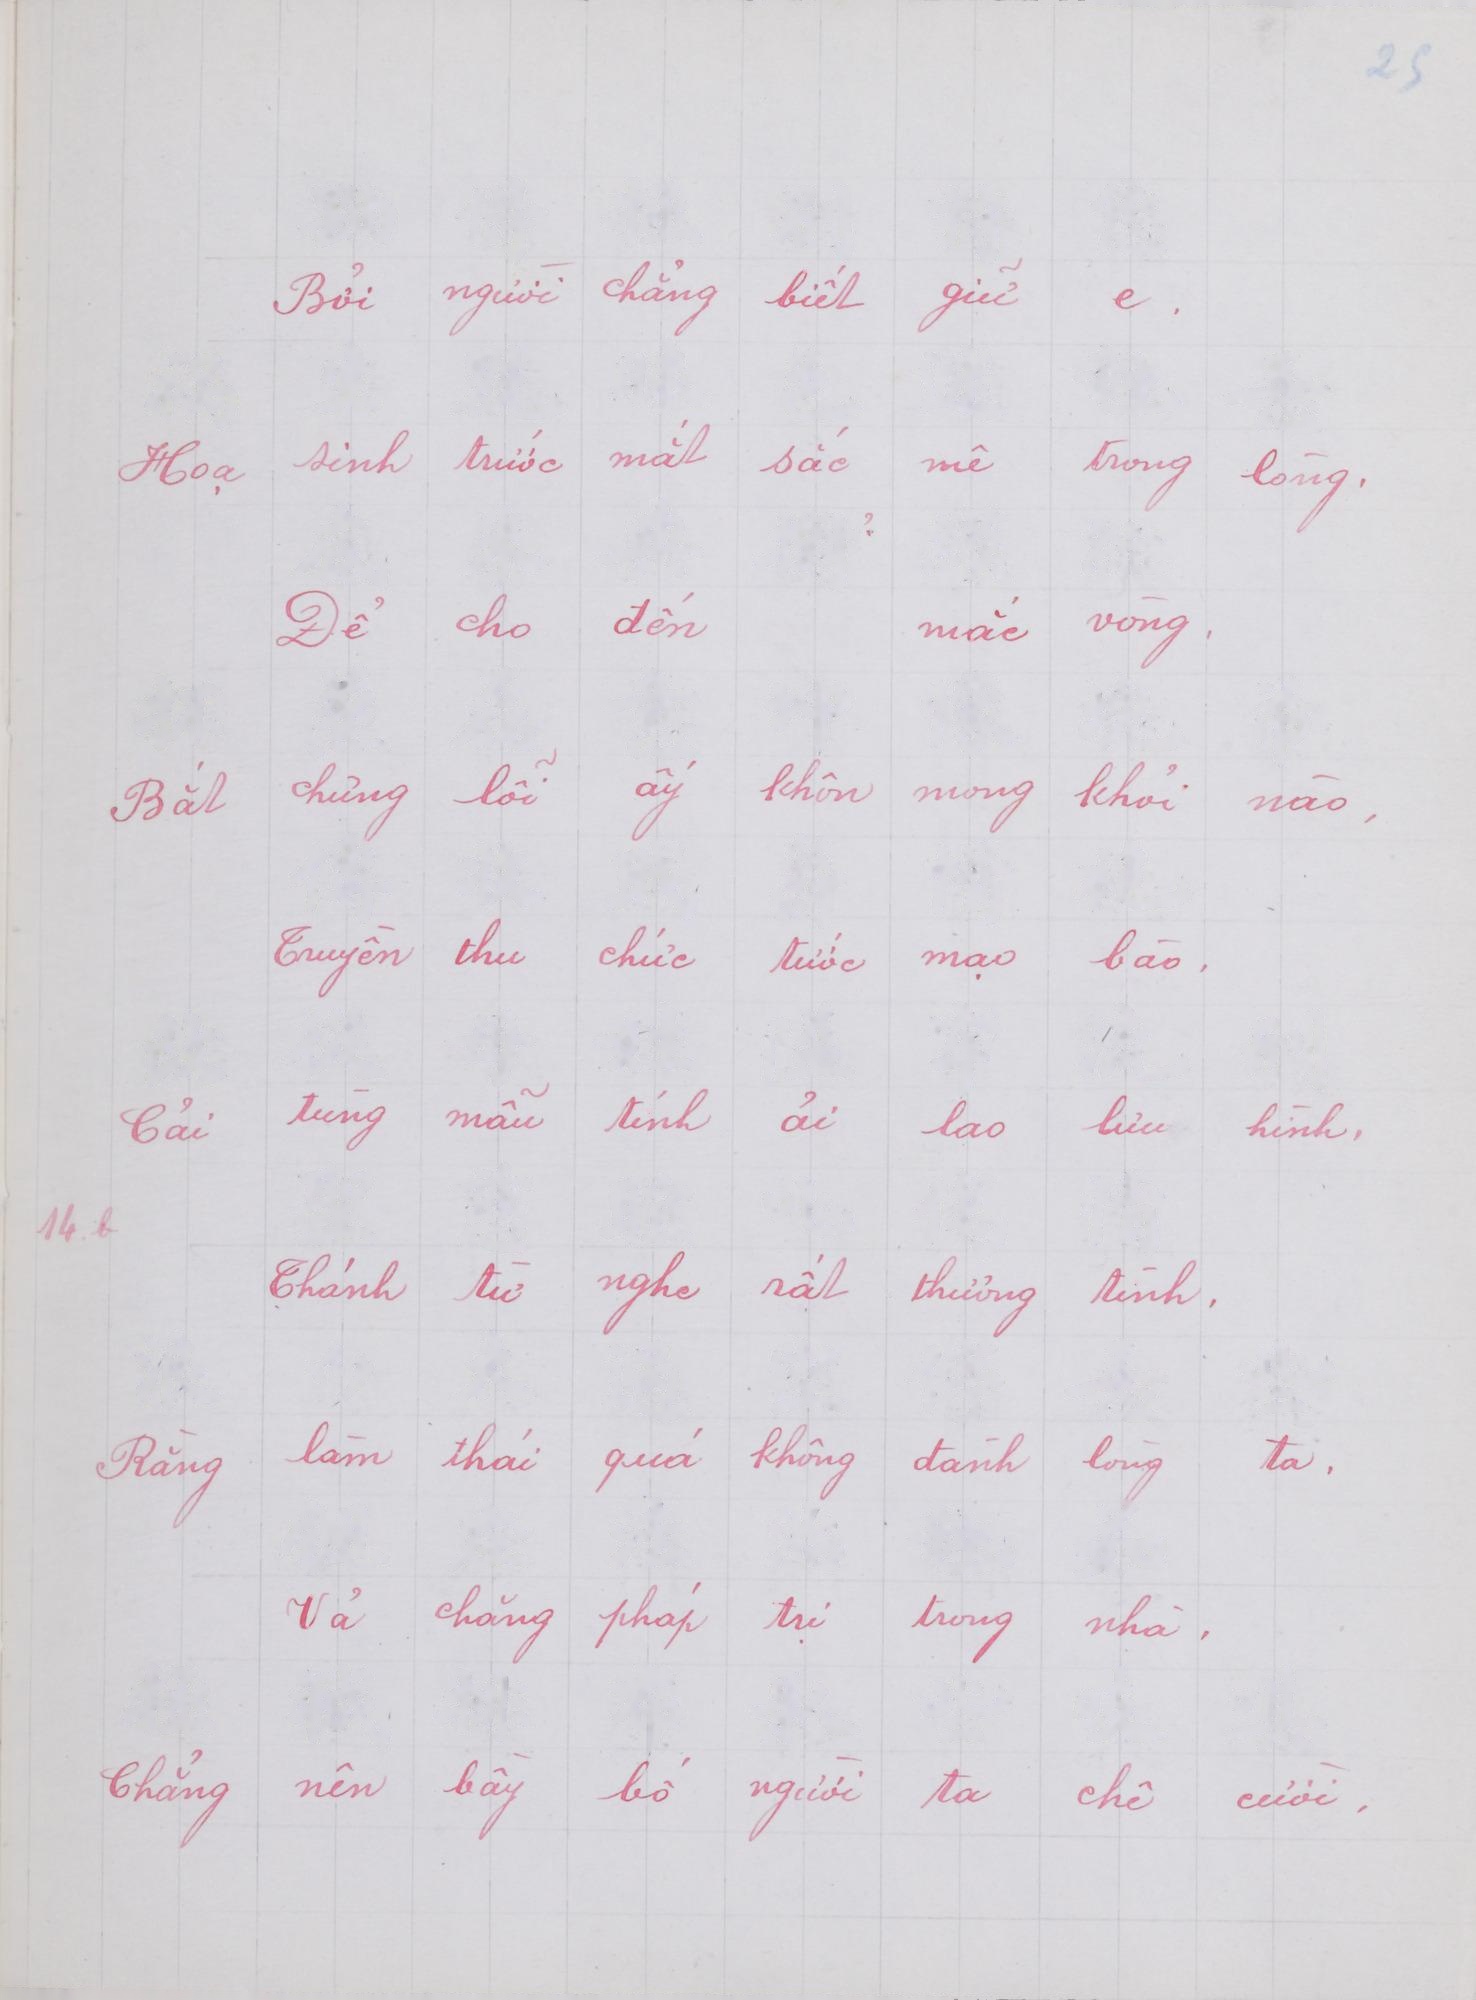 25
Bởi người chẳng biết giữ e.
Hoạ sinh trước mắt sắc mê trong lòng.
?
Để cho đến mắc vòng.
Bắt chưng lỗi ấy khôn mong khỏi nào,
Truyền thu chức tước mạo bào.
Cải tùng mẫu tính ải lao lưu hình.
14.b
Thánh từ nghe rất thương tình.
Rằng làm thái quá không đành lòng ta.
Vả chăng pháp trị trong nhà.
Chẳng nên bầy bố người ta chê cười.